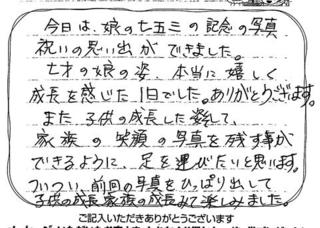 今日は、娘の七五三の記念の写真
祝いの思い出ができました。
七才の娘の姿、本当に嬉しく
成長を感じた1日でした。ありがとうございます。
また子供の成長した姿そして、
家族の笑顔の写真を残す事が
できるように、足を運びたいと思います。
ついつい、前回の写真をひっぱり出して
子供の成長、家族の成長みて楽しみました。
ご記入いただきありがとうございます